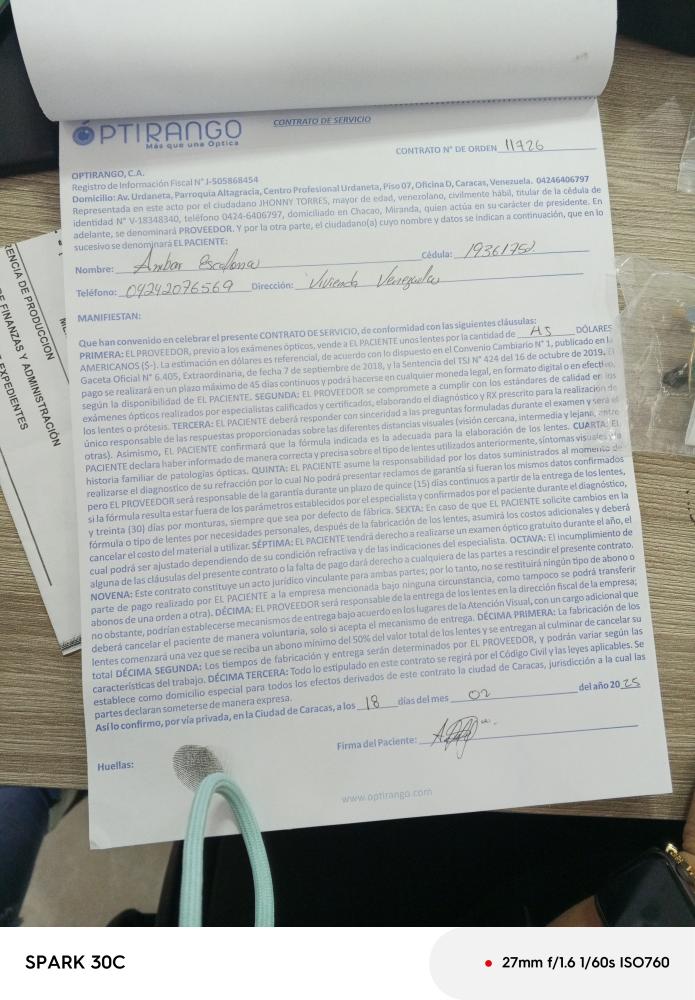 ÓPTIRANGO
Más que una Óptica
CONTRATO DE SERVICIO
CONTRATO N° DE ORDEN 11726
OPTIRANGO, C.A.
Registro de Información Fiscal N° J-505868454
Domicilio: Av. Urdaneta, Parroquia Altagracia, Centro Profesional Urdaneta, Piso 07, Oficina D, Caracas, Venezuela. 04246406797
Representada en este acto por el ciudadano JHONNY TORRES, mayor de edad, venezolano, civilmente hábil, titular de la cédula de
identidad N° V-18348340, teléfono 0424-6406797, domiciliado en Chacao, Miranda, quien actúa en su carácter de presidente. En
adelante, se denominará PROVEEDOR. Y por la otra parte, el ciudadano(a) cuyo nombre y datos se indican a continuación, que en lo
sucesivo se denominará EL PACIENTE:
Nombre: Ambar Escalona Cédula: 19361752
Teléfono: 04242076569 Dirección: Vivienda Venezuela
MANIFIESTAN:
Que han convenido en celebrar el presente CONTRATO DE SERVICIO, de conformidad con las siguientes cláusulas:
PRIMERA: EL PROVEEDOR, previo a los exámenes ópticos, vende a EL PACIENTE unos lentes por la cantidad de 45 DÓLARES
AMERICANOS ($-). La estimación en dólares es referencial, de acuerdo con lo dispuesto en el Convenio Cambiario N° 1, publicado en la
Gaceta Oficial N° 6.405, Extraordinaria, de fecha 7 de septiembre de 2018, y la Sentencia del TSJ N° 424 del 16 de octubre de 2019. El
pago se realizará en un plazo máximo de 45 días continuos y podrá hacerse en cualquier moneda legal, en formato digital o en efectivo,
según la disponibilidad de EL PACIENTE. SEGUNDA: EL PROVEEDOR se compromete a cumplir con los estándares de calidad en los
exámenes ópticos realizados por especialistas calificados y certificados, elaborando el diagnóstico y RX prescrito para la realización de
los lentes o prótesis. TERCERA: EL PACIENTE deberá responder con sinceridad a las preguntas formuladas durante el examen y será el
único responsable de las respuestas proporcionadas sobre las diferentes distancias visuales (visión cercana, intermedia y lejana, entre
otras). Asimismo, EL PACIENTE confirmará que la fórmula indicada es la adecuada para la elaboración de los lentes. CUARTA: EL
PACIENTE declara haber informado de manera correcta y precisa sobre el tipo de lentes utilizados anteriormente, síntomas visuales y
historia familiar de patologías ópticas. QUINTA: EL PACIENTE asume la responsabilidad por los datos suministrados al momento de
realizarse el diagnostico de su refracción por lo cual No podrá presentar reclamos de garantía si fueran los mismos datos confirmados
pero EL PROVEEDOR será responsable de la garantía durante un plazo de quince (15) días continuos a partir de la entrega de los lentes,
si la fórmula resulta estar fuera de los parámetros establecidos por el especialista y confirmados por el paciente durante el diagnóstico,
y treinta (30) días por monturas, siempre que sea por defecto de fábrica. SEXTA: En caso de que EL PACIENTE solicite cambios en la
fórmula o tipo de lentes por necesidades personales, después de la fabricación de los lentes, asumirá los costos adicionales y deberá
cancelar el costo del material a utilizar. SÉPTIMA: EL PACIENTE tendrá derecho a realizarse un examen óptico gratuito durante el año, el
cual podrá ser ajustado dependiendo de su condición refractiva y de las indicaciones del especialista. OCTAVA: El incumplimiento de
alguna de las cláusulas del presente contrato o la falta de pago dará derecho a cualquiera de las partes a rescindir el presente contrato.
NOVENA: Este contrato constituye un acto jurídico vinculante para ambas partes; por lo tanto, no se restituirá ningún tipo de abono o
parte de pago realizado por EL PACIENTE a la empresa mencionada bajo ninguna circunstancia, como tampoco se podrá transferir
abonos de una orden a otra). DÉCIMA: EL PROVEEDOR será responsable de la entrega de los lentes en la dirección fiscal de la empresa;
no obstante, podrían establecerse mecanismos de entrega bajo acuerdo en los lugares de la Atención Visual, con un cargo adicional que
deberá cancelar el paciente de manera voluntaria, solo si acepta el mecanismo de entrega. DÉCIMA PRIMERA: La fabricación de los
lentes comenzará una vez que se reciba un abono mínimo del 50% del valor total de los lentes y se entregan al culminar de cancelar su
total DÉCIMA SEGUNDA: Los tiempos de fabricación y entrega serán determinados por EL PROVEEDOR, y podrán variar según las
características del trabajo. DÉCIMA TERCERA: Todo lo estipulado en este contrato se regirá por el Código Civil y las leyes aplicables. Se
establece como domicilio especial para todos los efectos derivados de este contrato la ciudad de Caracas, jurisdicción a la cual las
partes declaran someterse de manera expresa.
Así lo confirmo, por vía privada, en la Ciudad de Caracas, a los 18 días del mes 02 del año 20 25
Firma del Paciente:
Huellas:
www.optirango.com
ENCIA DE PRODUCCION
E FINANZAS Y ADMINISTRACIÓN
EXPEDIENTES
SPARK 30C
27mm f/1.6 1/60s ISO760